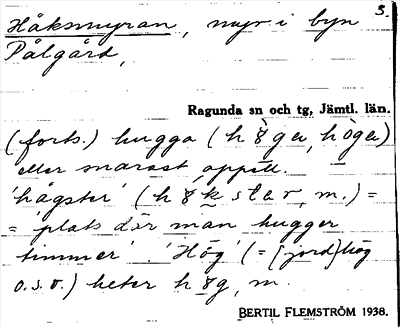 3.
Håksmyran, myr i byn
Pålgård,
Ragunda sn och tg, Jämtl. län.
(forts.) hugga (h8ga, hòga)
eller snarast
'hågster' (h8kstər, m.) =
= 'plats där man hugger
timmer'. 'Hög' (= (jord)hög
o.s.v.) heter h8g, m.
BERTIL FLEMSTRÖM 1938.